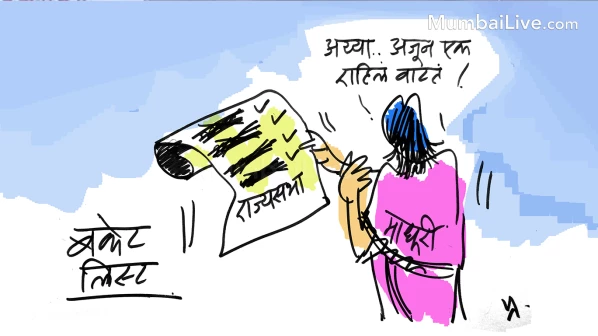 MumbaiLive.com
अय्या.. अजून एक
राहिलं वाटतं !
राज्यसभा
माधुरी
बकेट
लिस्ट